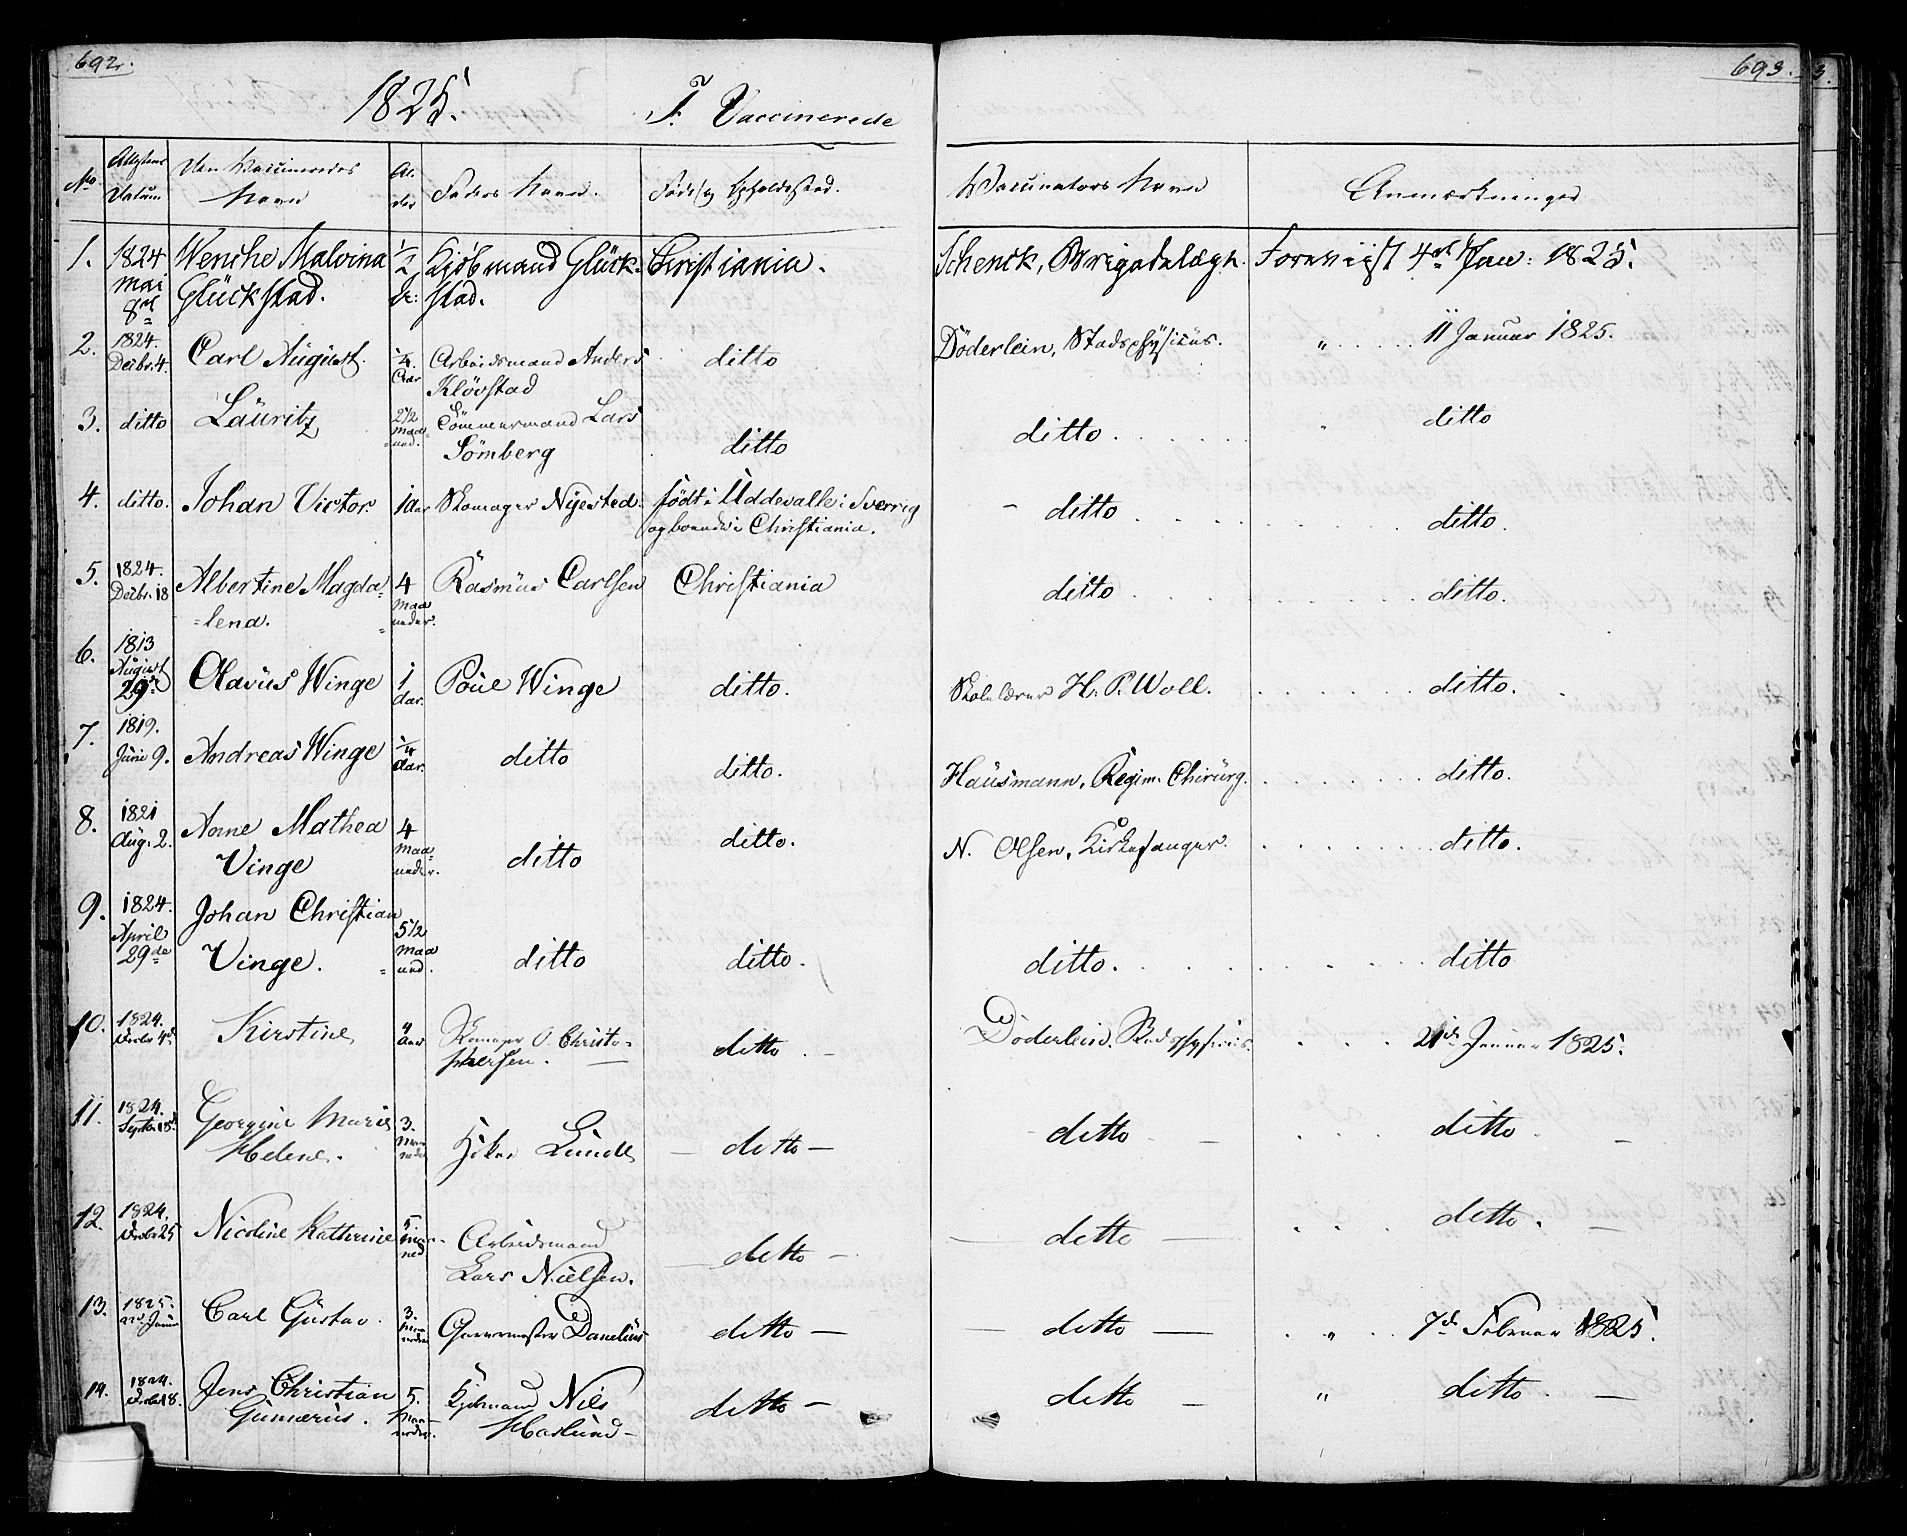 692.
693.
1825. F. Vaccinerede
No Attestens Datum Den Vaccineredes Navn Alder Faders Navn. Føde og Opholdssted. Vaccinators Navn Anmærkninger
1. 1824 Mai 8de Wenche Malvina Glückstad. 1/2 Kjöbmand Glückstad. Christiania. Schenck, Brigadelæge. Foreviist 4de Jan: 1825.
2. 1824. Decbr. 4. Carl August. 1/4 Aar Arbeidsmand Anders Klövstad ditto Döderlein, Stadsphysicus. " 11 Januar 1825.
3. ditto Lauritz 2 1/2 Maaned. Tömmermand Lars Sömberg ditto ditto. ditto
4. ditto. Johan Victor. 1 Aar Skomager Nyested. født i Uddevalle i Sverrig og boende i Christiania. - ditto ditto.
5. 1824. Decbr. 18 Albertine Magda=lena. 4 Maaneder. Rasmus Carlsen Christiania ditto ditto.
6. 1813 August 29de Olavus Winge 1 Aar. Poul Winge ditto. Skolelærer H. P. Woll. ditto.
7. 1819. Juni 9. Andreas Winge 1/4 Aar. ditto ditto. Hausmann, Regim. Chirurg. ditto.
8. 1821 Aug. 2. Anne Mathea Vinge 4 Maaneder. ditto ditto. N. Olsen, Kirkesanger. ditto.
9. 1824. April 29de Johan Christian Vinge. 5 1/2 Maaned. ditto ditto. ditto. ditto
10. 1824. Decbr 4de Kirstine 4 Aar Skomager O. Christophersen. ditto. Döderlein. Stadsphysicus. 21de Januar 1825.
11. 1824. Septbr 18de Georgine Marie Helene. 3. Maaneder Lunde ditto ditto ditto.
12. 1824. Decbr 25 Nicoline Kathrine 5. Maaned Arbeidsmand Lars Nielsen. ditto ditto ditto.
13. 1825. Januar Carl Gustav. 3. Maaneder Danelius ditto ditto " 7de Februar 1825.
14. 1824. Decbr 18. Jens Christian Gunnerus. 5. Maaneder. Kjöbmand Nils Haslund ditto ditto " ditto.